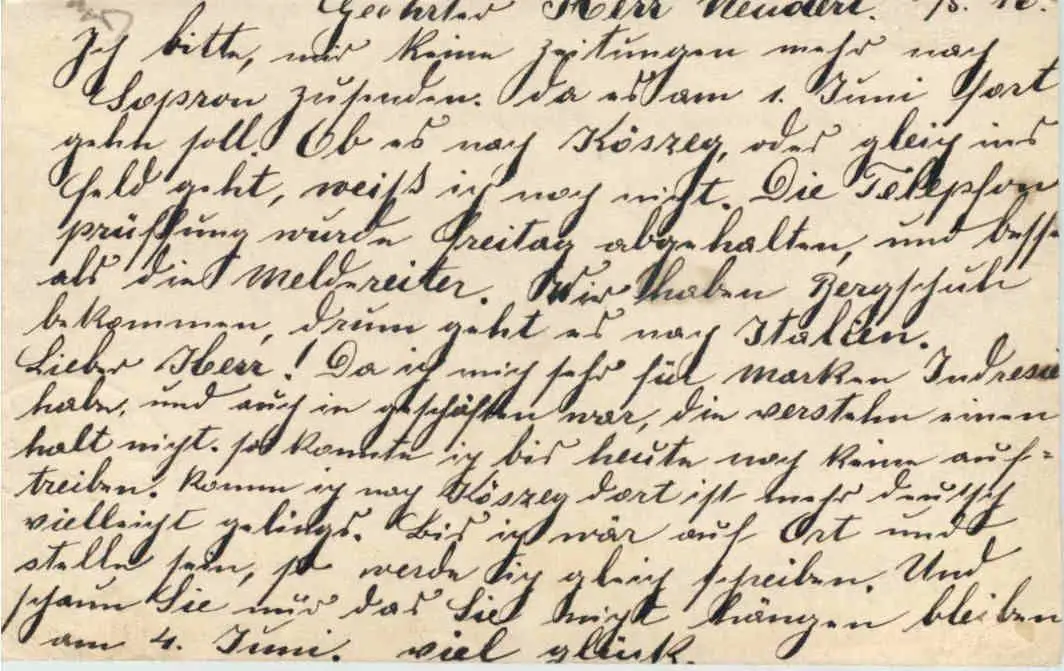 Geehrter Herr Neudert.
Ich bitte, mir keine Zeitungen mehr nach
Sopron zusenden. da es am 1. Juni fort
gehn soll. Ob es nach Köszeg, oder gleich ins
Feld geht, weiß ich noch nicht. Die Telephon
prüffung wurde Freitag abgehalten, und besse
als die Meldereiter. Wir haben Bergschuh
bekommen, drum geht es nach Italien.
Lieber Herr! Da ich mich sehr für Marken Indresie
habe, und auch in geschäften war, die verstehn einen
halt nicht. so konnte ich bis heute noch keine auf=
treiben. komm ich nach Köszeg dort ist mehr deutsch
vielleicht gelings. Bis ich wär auf Ort und
stelle sein, so werde ich gleich schreiben. Und
schaun Sie nur das Sie nicht hängen bleiben
am 4. Juni. viel glück.